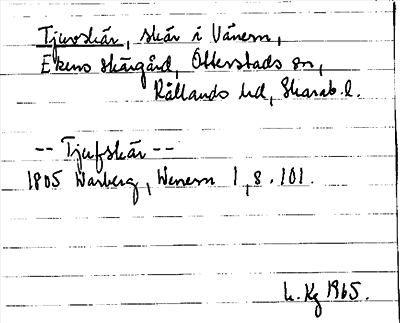 Tjuvskär, skär i Vänern,
Ekens skärgård, Otterstads sn,
Kållands hd, Skarab. l.
-- Tjufskär --
1805 Warberg, Wenern 1, s. 101.
L. Kg 1965.